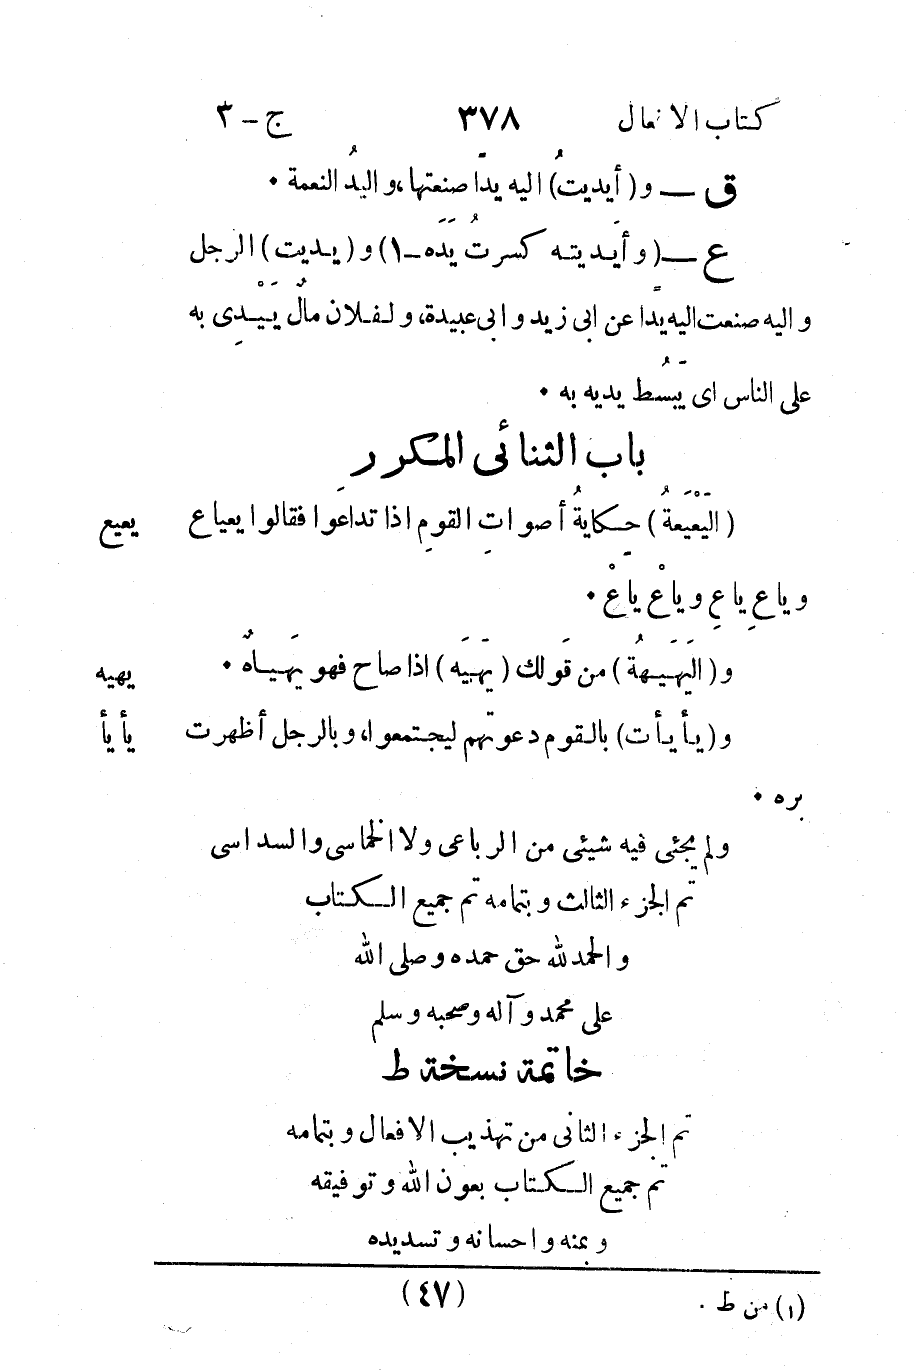 كتاب الافعال ٣٧٨ ج - ٣
ق — و (أيديتُ) اليه يدًا صنعتها، و اليدُ النعمة ٠
ع — (و أيديته كسرتُ يَدَه - ١) و (يديت) الرجل
و اليه صنعت اليه يدًا عن ابى زيد و ابى عبيدة، و لفلان مالٌ يَيْدِى به
على الناس اى يَبْسُط يديه به ٠
باب الثنائى المكرر
(اليَعْيَعةُ) حِكايةُ أصواتِ القومِ اذا تداعوا فقالوا يعياع يعيع
و ياعِ ياعِ و ياعْ ياعْ ٠
و (اليَهْيَهةُ) من قَولك (يَهْيَه) اذا صاح فهو يَهْياهٌ ٠ يهيه
و (يأيأت) بالقوم دعوتهم ليجتمعوا، و بالرجل أظهرت يأيأ
بره ٠
و لم يجئى فيه شيئى من الرباعى ولا الخماسى والسداسى
تم الجزء الثالث و بتمامه تم جميع الكتاب
و الحمد لله حق حمده و صلى الله
على محمد و آله وصحبه و سلم
خاتمة نسخة ط
تم الجزء الثانى من تهذيب الافعال و بتمامه
تم جميع الكتاب بعون الله و توفيقه
و بمنه و احسانه و تسديده
(١) من ط ٠ (٤٧)